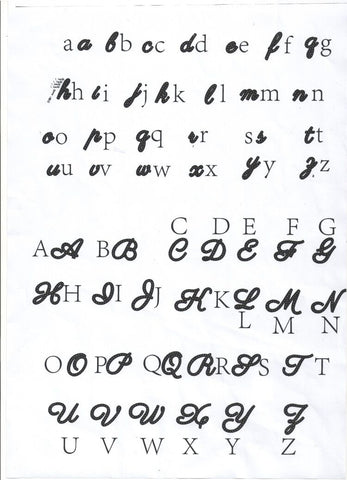 aa bb cc dd ee ff gg
hh ii jj kk ll mm nn
oo pp qq rr ss tt
uu vv ww xx yy zz
C D E F G
AA BB C D E F G
HH II JJ KK L M N
L M N
OO PP QQ RR SS TT
U V W X Y Z
U V W X Y Z